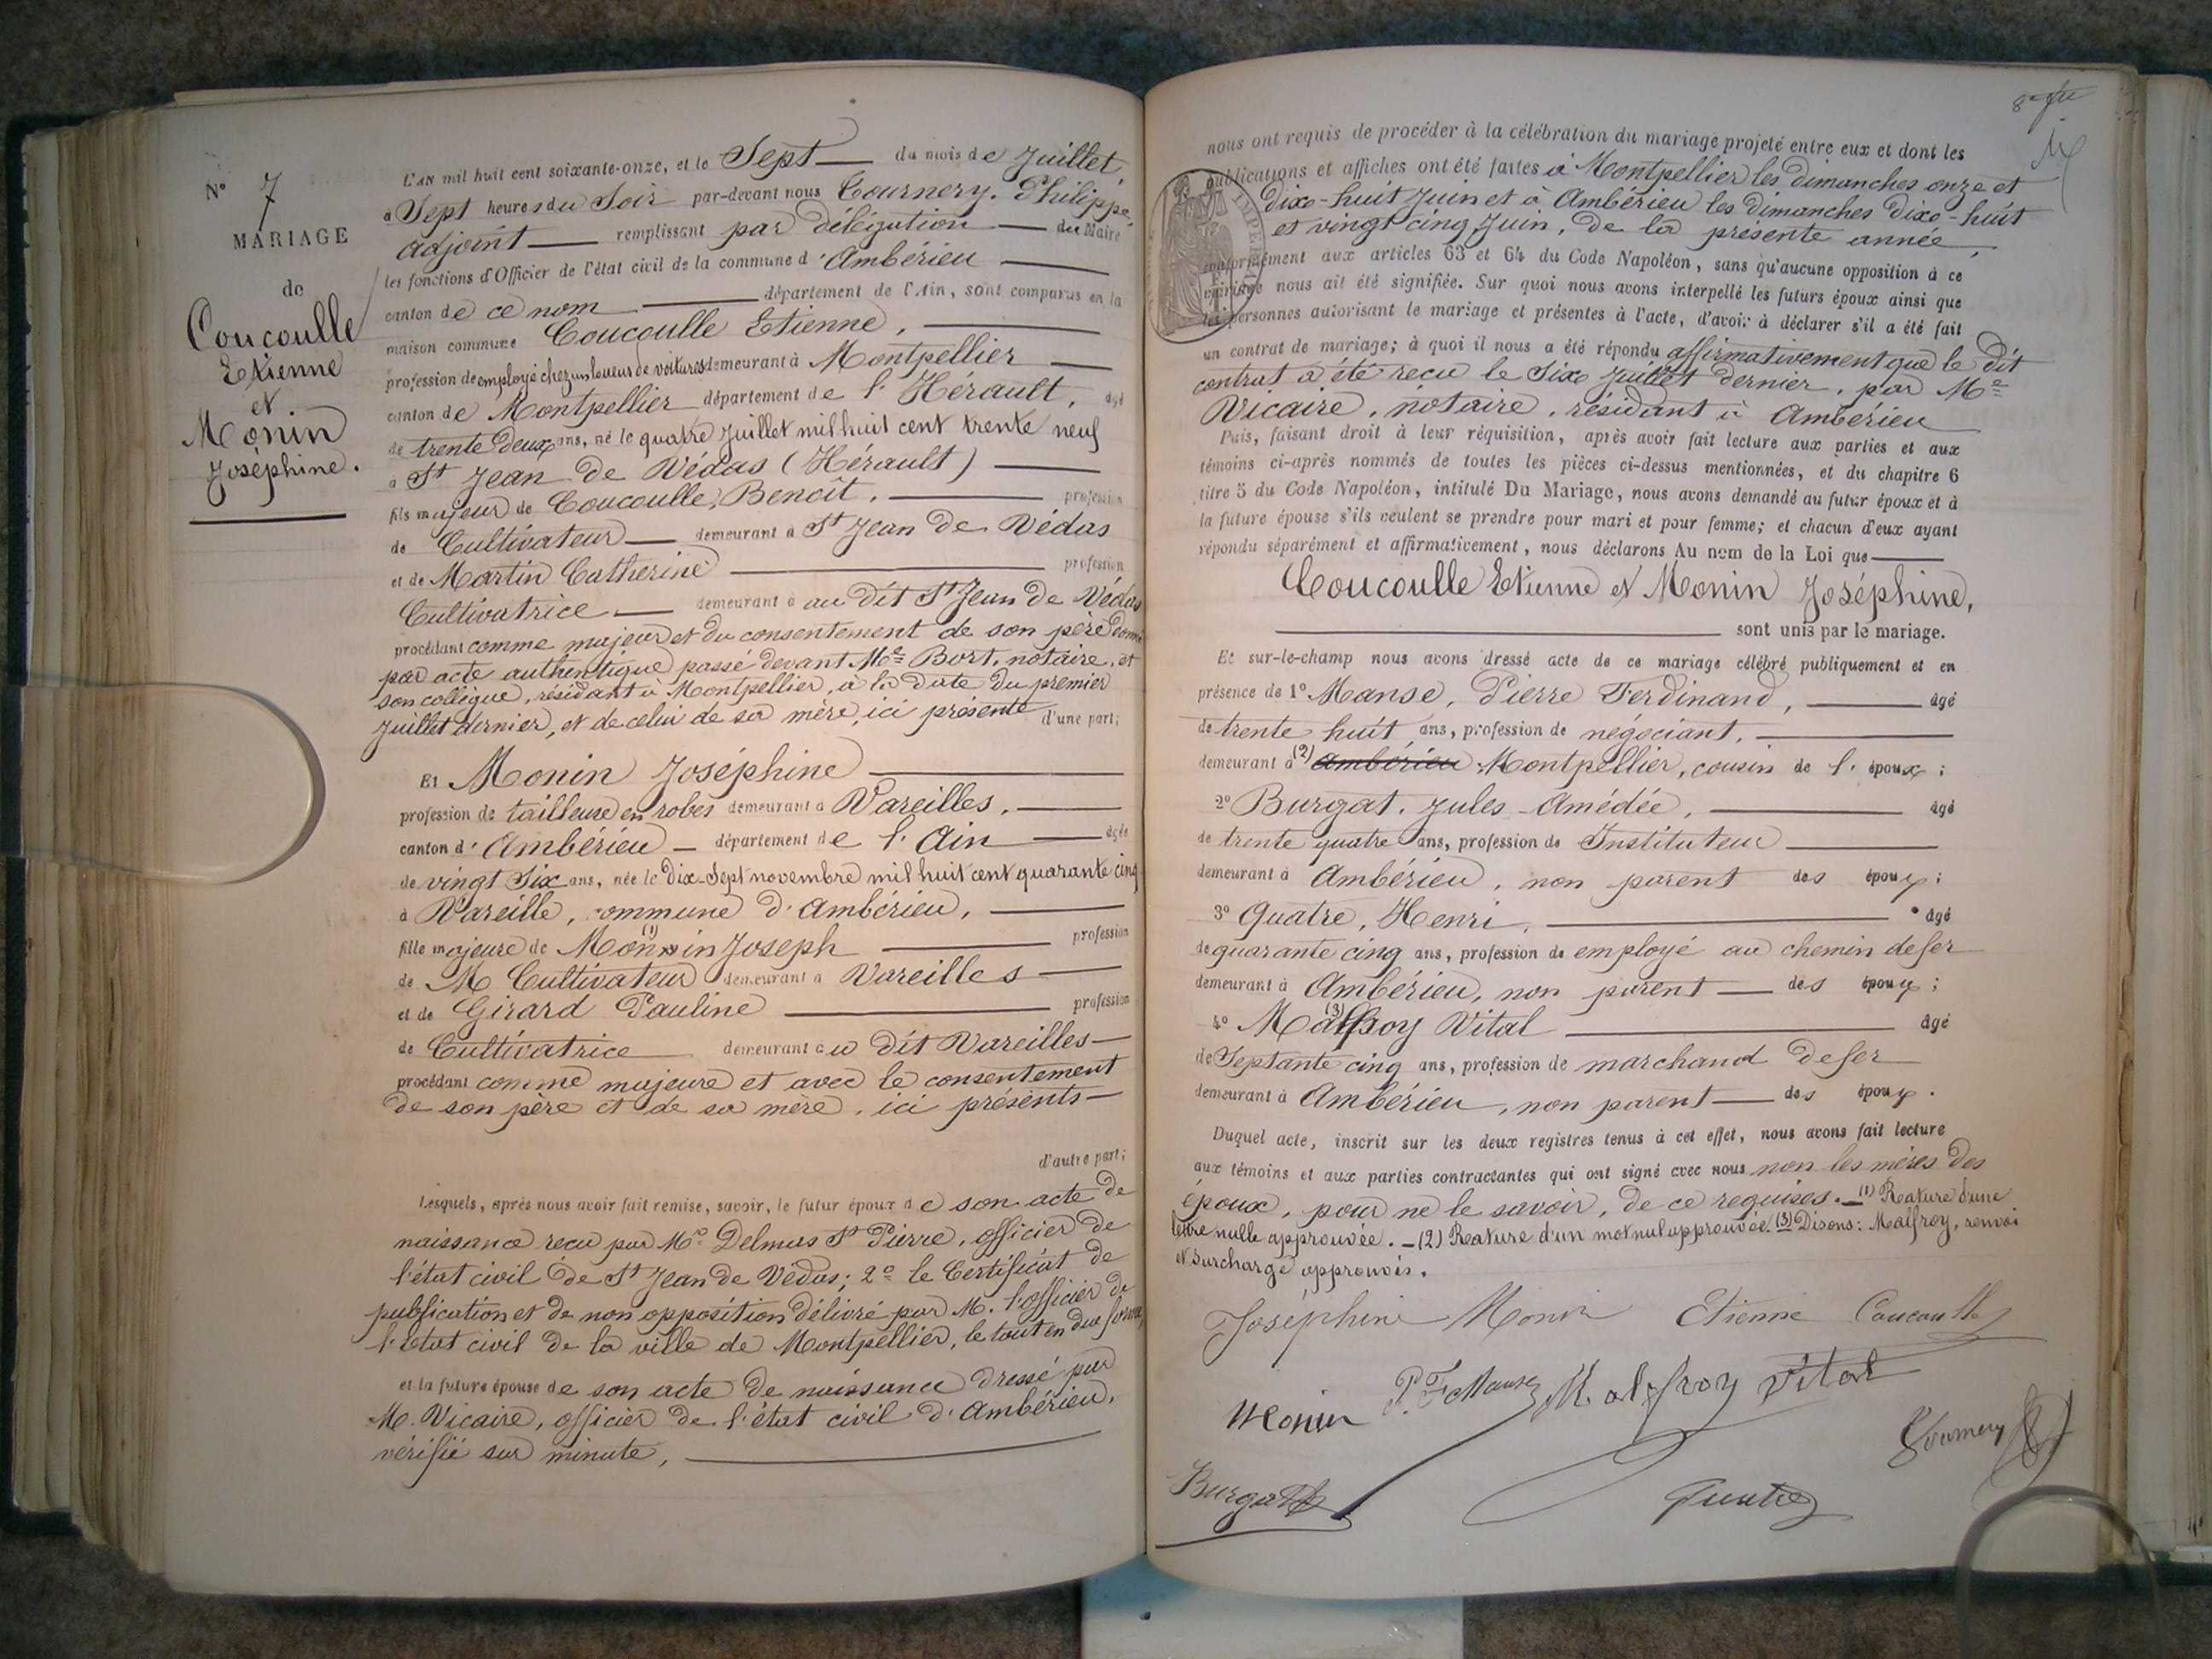 N° 7
MARIAGE
de
Coucoulle
Etienne
et
Monin
Joséphine.
L'AN mil huit cent soixante-onze, et le Sept du mois de Juillet,
à Sept heures du Soir par-devant nous Tournery, Philippe
adjoint remplissant par délégation du Maire
les fonctions d'Officier de l'état civil de la commune d'Ambérieu
canton de ce nom département de l'Ain, sont comparus en la
maison commune Coucoulle Etienne,
profession de employé chez un loueur de voitures demeurant à Montpellier
canton de Montpellier département de l'Hérault, âgé
de trente deux ans, né le quatre Juillet mil huit cent trente neuf
à St Jean de Védas (Hérault)
fils majeur de Coucoulle, Benoît, profession
de Cultivateur demeurant à St Jean de Védas
et de Martin Catherine profession
Cultivatrice demeurant à au dit St Jean de Védas
procédant comme majeur et du consentement de son père donné
par acte authentique passé devant Me Bort, notaire, et
son collègue, résidant à Montpellier, à la date du premier
Juillet dernier, et de celui de sa mère, ici présente d'une part;
Et Monin Joséphine
profession de tailleuse en robes demeurant à Vareilles,
canton d'Ambérieu département de l'Ain âgée
de vingt Six ans, née le Dix-Sept novembre mil huit cent quarante cinq
à Vareille, commune d'Ambérieu,
fille majeure de Monin (1) Joseph profession
de M Cultivateur demeurant à Vareilles
et de Girard Pauline profession
de Cultivatrice demeurant au dit Vareilles
procédant comme majeure et avec le consentement
de son père et de sa mère, ici présents
d'autre part;
Lesquels, après nous avoir fait remise, savoir, le futur époux de son acte de
naissance reçu par Mr Delmas St Pierre, officier de
l'état civil de St Jean de Védas; 2° le Certificat de
publication et de non opposition délivré par M. l'officier de
l'état civil de la ville de Montpellier, le tout en due forme,
et la future épouse de son acte de naissance dressé par
M. Vicaire, officier de l'état civil d'Ambérieu,
vérifié sur minute,
nous ont requis de procéder à la célébration du mariage projeté entre eux et dont les
publications et affiches ont été faites à Montpellier les dimanches onze et
dix-huit Juin et à Ambérieu les dimanches dix-huit
et vingt cinq Juin, de la présente année,
conformément aux articles 63 et 64 du Code Napoléon, sans qu'aucune opposition à ce
mariage nous ait été signifiée. Sur quoi nous avons interpellé les futurs époux ainsi que
les personnes autorisant le mariage et présentes à l'acte, d'avoir à déclarer s'il a été fait
un contrat de mariage; à quoi il nous a été répondu affirmativement que le dit
contrat a été reçu le Six Juillet dernier, par Me
Vicaire, notaire, résidant à Ambérieu
Puis, faisant droit à leur réquisition, après avoir fait lecture aux parties et aux
témoins ci-après nommés de toutes les pièces ci-dessus mentionnées, et du chapitre 6
titre 5 du Code Napoléon, intitulé Du Mariage, nous avons demandé au futur époux et à
la future épouse s'ils veulent se prendre pour mari et pour femme; et chacun d'eux ayant
répondu séparément et affirmativement, nous déclarons Au nom de la Loi que
Coucoulle Etienne et Monin Joséphine,
sont unis par le mariage.
Et sur-le-champ nous avons dressé acte de ce mariage célébré publiquement et en
présence de 1° Manse, Pierre Ferdinand, âgé
de trente huit ans, profession de négociant,
demeurant à (2) Ambérieu Montpellier, cousin de l'époux;
2° Burgat, Jules-Amédée, âgé
de trente quatre ans, profession de Instituteur
demeurant à Ambérieu, non parent des époux;
3° Quatre, Henri, âgé
de quarante cinq ans, profession de employé au chemin de fer
demeurant à Ambérieu, non parent des époux;
4° Malfroy (3) Vital âgé
de Septante cinq ans, profession de marchand de fer
demeurant à Ambérieu, non parent des époux.
Duquel acte, inscrit sur les deux registres tenus à cet effet, nous avons fait lecture
aux témoins et aux parties contractantes qui ont signé avec nous non les mères des
époux, pour ne le savoir, de ce requises. (1) Rature d'une
lettre nulle approuvée. (2) Rature d'un mot nul approuvée. (3) Disons: Malfroy, renvoi
et surcharge approuvés.
Joséphine Monin Etienne Coucoulle
Monin P. F. Manse Malfroy Vital
Tournery
Burgat Quatre